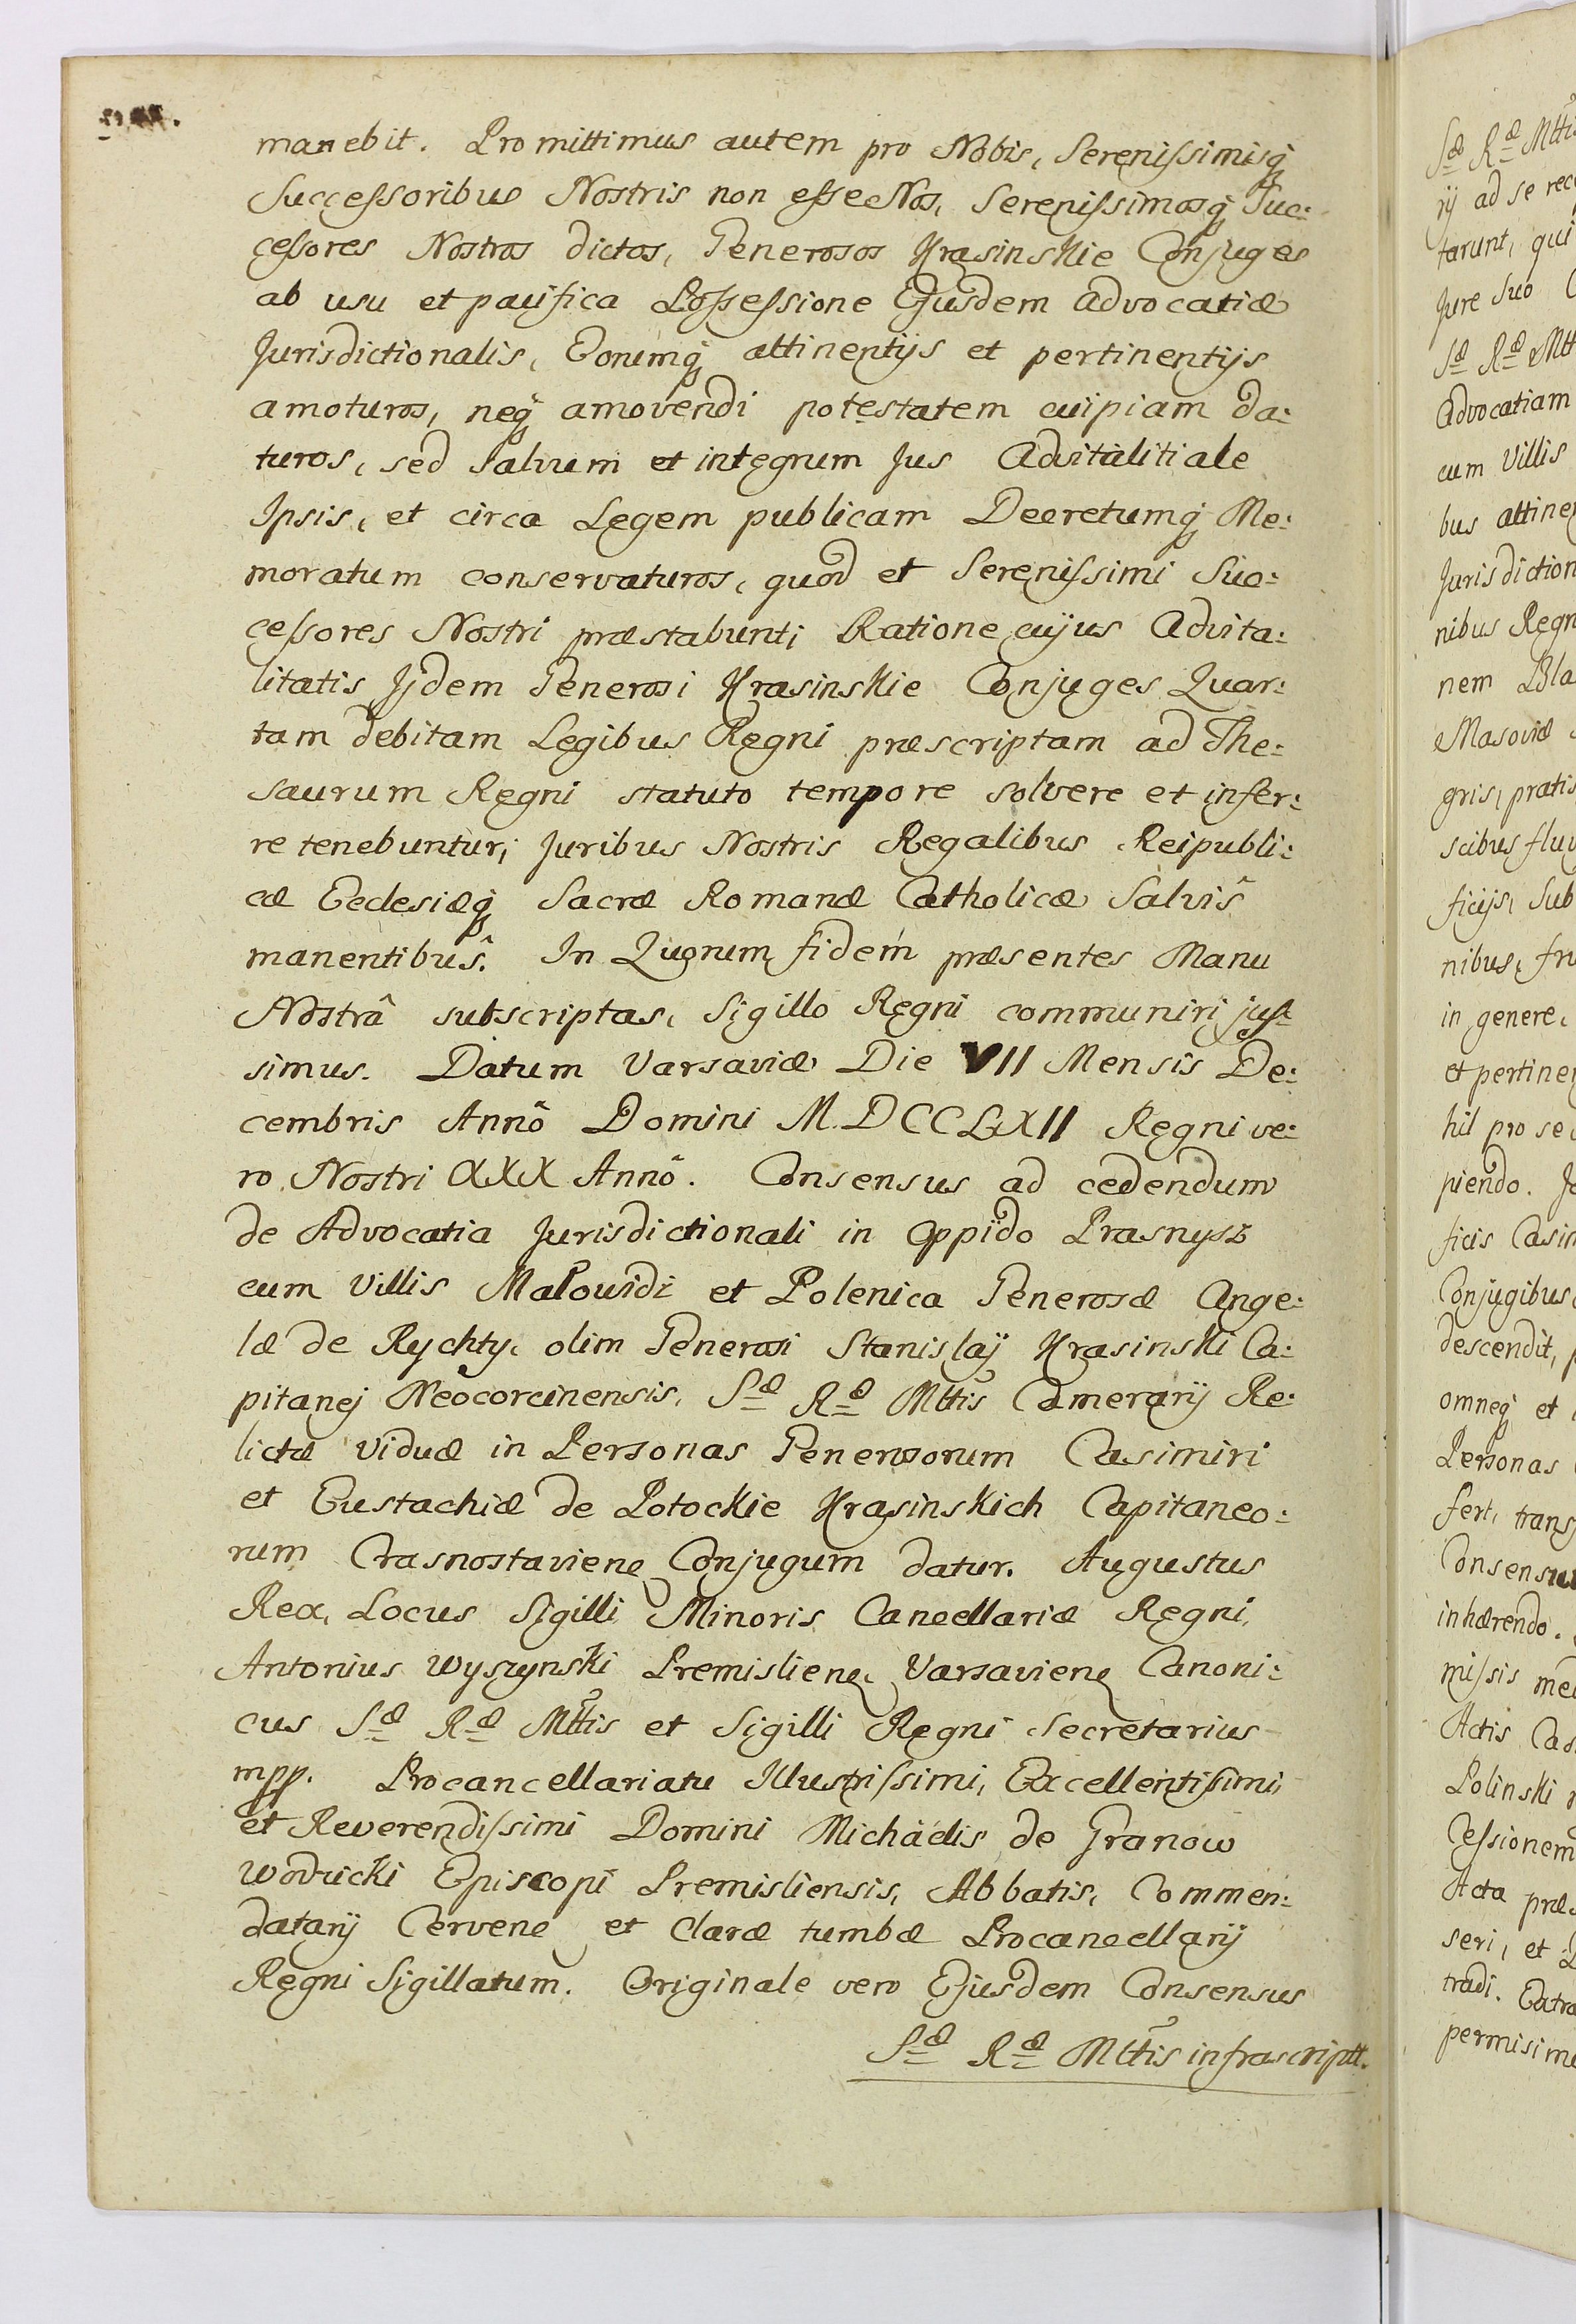 manebit. Promittimus autem pro Nobis, Serenissimisq́
Successoribus Nostris non esse Nos, Serenissimosq́ Suc:
cessores Nostros dictos, Generosos Krasinskie Conjuges
ab usu et pacifica Possessione Ejusdem Advocatiæ
Jurisdictionalis, Eorumq́ attinentijs et pertinentijs
amoturos, neq́ amovendi potestatem cuipiam da:
turos, sed Salvum et integrum Jus Advitalitiale
Ipsis, et circa Legem publicam Decretumq́ Me:
moratum conservaturos, quod et Serenissimi Suc:
cessores Nostri præstabunt; Ratione cujus Advita:
litatis Ijdem Generosi Krasinskie Conjuges Quar:
tam debitam Legibus Regni præscriptam ad The:
saurum Regni statuto tempore solvere et infer:
re tenebuntur; Juribus Nostris Regalibus Reipubli:
cæ Ecclesiæq́ Sacræ Romanæ Catholicæ Salvis
manentibus. In Quorum fidem præsentes Manu
Nostrâ subscriptas, Sigillo Regni communiri jus:
simus. Datum Varsaviæ Die VII Mensis De:
cembris Annô Domini M.DCCLXII Regni ve:
ro Nostri XXX Annô. Consensus ad cedendum
de Advocatia Jurisdictionali in Oppido Prasnysz
cum Villis Małowidz et Polenica Generosæ Ange:
læ de Rychty, olim Generosi Stanislaij Krasinski Ca:
pitanej Neocorcinensis, Sæ Ræ Mttis Camerarij Re:
lictæ Viduæ in Personas Generosorum Casimiri
et Eustachiæ de Potockie Krasinskich Capitaneo:
rum Crasnostaviens Conjugum datur. Augustus
Rex, Locus Sigilli Minoris Cancellariæ Regni,
Antonius Wyszynski Premisliens, Varsaviens Canoni:
cus Sæ Ræ Mttis et Sigilli Regni Secretarius
mpp. Procancellariatu Illustrissimi, Excellentissimi
et Reverendissimi Domini Michaelis de Granow
Wodzicki Episcopi Premisliensis, Abbatis, Commen:
datarij Cervene et Claræ tumbæ Procancellarij
Regni Sigillatum. Originale vero Ejusdem Consensus
Sæ Ræ Mttis infrascriptt.
Sæ Ræ Mttis
ij ad se rec
tarunt, qui
Jure Suo
Sæ Ræ Mtt
Advocatiam
cum Villis
bus attine
Jurisdiction
nibus Regn
nem
Masoviæ
gris, pratis
scibus fluv
ficijs, Sub
nibus, fru
in genere,
et pertinen
hil pro se
piendo. J
ficis Casim
Conjugibus
descendit,
omneq́ et
Personas
fert, trans
Consensu
inhærendo.
missis me
Actis Cas
Polinski
Cessionem
Acta præ
seri, et
tradi. Extra
permisim